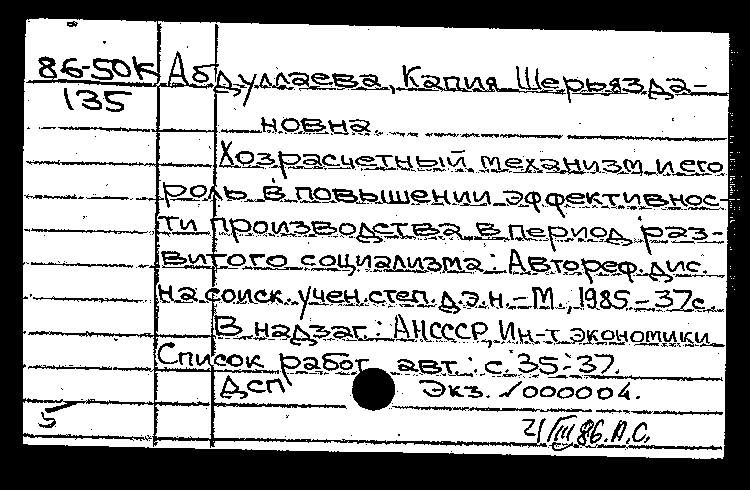 86-50к Абдуллаева, Капия Шерьязда-
135
новна.
Хозрасчетный механизм и его
роль в повышении эффективнос-
ти производства в период раз-
витого социализма: Автореф. дис.
на соиск. учен. степ. д.э.н. - М., 1985 - 37с.
В надзаг.: АНСССР, Ин-т экономики
Список работ авт.: с. 35-37.
ДСП Экз. √000004.
5
21/III 86. А.С.